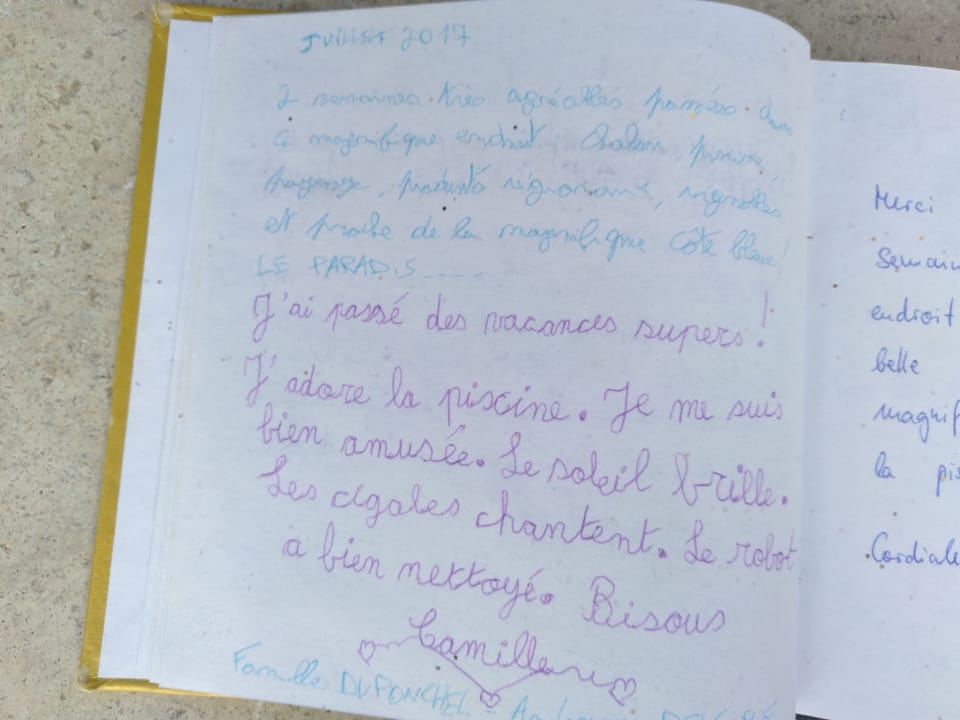 JUILLET 2017
2 semaines très agréables passées dans
ce magnifique endroit : Chaleur, piscine,
paysage, produits régionaux, vignobles
et proche de la magnifique Côte bleue!
LE PARADIS.....
J'ai passé des vacances supers !
J'adore la piscine. Je me suis
bien amusée. Le soleil brille.
Les cigales chantent. Le robot
a bien nettoyé. Bisous
Camille
Famille DUPONCHEL -
Merci
Semain
endroit
belle
magnif
la pis
Cordiale